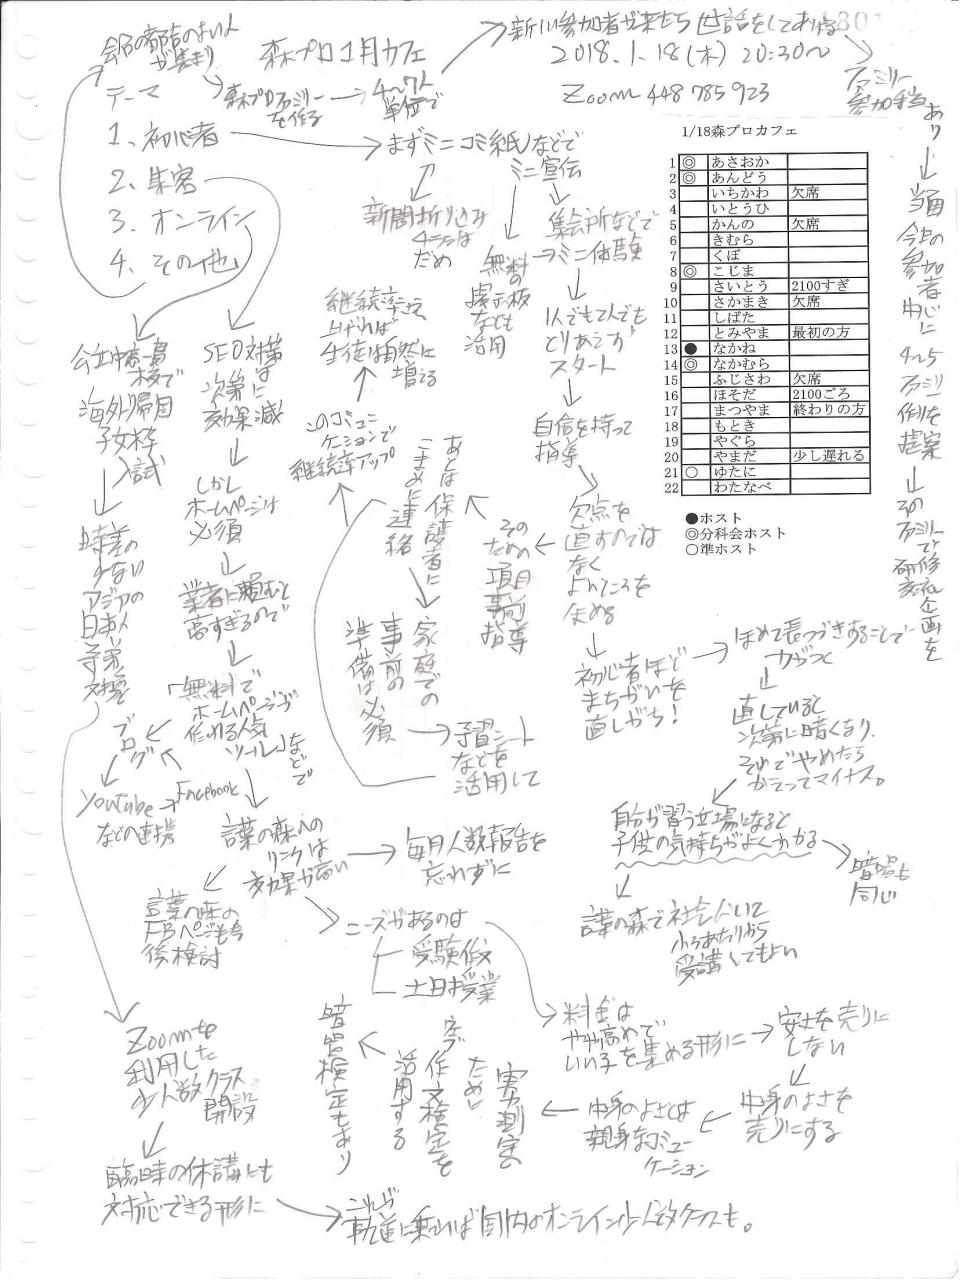 森プロ1月カフェ
新しい参加者が来たら世話をしてあげる
2018.1.18(木) 20:30～
Zoom 448 785 923
1801
ファミリー
参加手当
あり
当面
今日の
参加者
中心に
4～5
ファミリー
例を
提案
その
ファミリーで
研修
交流
企画を
テーマ
1、初心者
2、集客
3、オンライン
4、その他
森プロファミリー
を作る
4～7人
単位で
まずミニコミ紙などで
ミニ宣伝
新聞折り込み
チラシは
だめ
無料の
掲示板
なども
活用
集会所などで
ミニ体験
1人でも2人でも
とりあえず
スタート
自信を持って
指導
欠点を
直すのでは
なく
よいところを
ほめる
初心者ほど
まちがいを
直しがち!
ほめて長つづきすることで
力がつく
直していると
次第に暗くなり、
それでやめたら
かえってマイナス。
自分が習う立場になると
子供の気持ちがよくわかる
暗唱も
同じ
受講してもよい
その
ための
項目
事前
指導
あとは保護者に
こまめに連絡
家庭での
事前の
準備は
必須
予習シート
などを
活用して
このコミュニ
ケーションで
継続率アップ
継続率さえ
上げれば
生徒は自然に
増える
1/18森プロカフェ
1 ◎ あさおか
2 ◎ あんどう
3 いちかわ 欠席
4 いとうひ
5 かんの 欠席
6 きむら
7 くぼ
8 ◎ こじま
9 さいとう 2100すぎ
10 さかまき 欠席
11 しばた
12 とみやま 最初の方
13 ● なかね
14 ◎ なかむら
15 ふじさわ 欠席
16 ほそだ 2100ごろ
17 まつやま 終わりの方
18 もとき
19 やぐら
20 やまだ 少し遅れる
21 ○ ゆたに
22 わたなべ
●ホスト
◎分科会ホスト
○準ホスト
SEO対策
は
次第に
効果減
しかし
ホームページは
必須
業者に頼むと
高すぎるので
「無料で
ホームページが
作れる人気
ツール」など
で
ブログ
YouTube
Facebook
などの連携
言葉の森への
リンクは
効果が高い
毎月人数報告を
忘れずに
言葉の森の
FBページも今
後検討
ニーズがあるのは
受験作文
土日授業
料金は
やや高めで
いい子を集める形に
安さを売りに
しない
中身のよさを
売りにする
中身のよさとは
親身なコミュニ
ケーション
実力測定の
ために
作文検定を
活用する
暗唱検定もあり
公立中高一貫
校で
海外帰国
子女枠
入試
時差の
少ない
アジアの
日本人
子弟
対象
Zoomを
利用した
少人数クラス
開設
臨時の休講にも
対応できる形に
これが
軌道に乗れば国内のオンライン少人数クラスも。